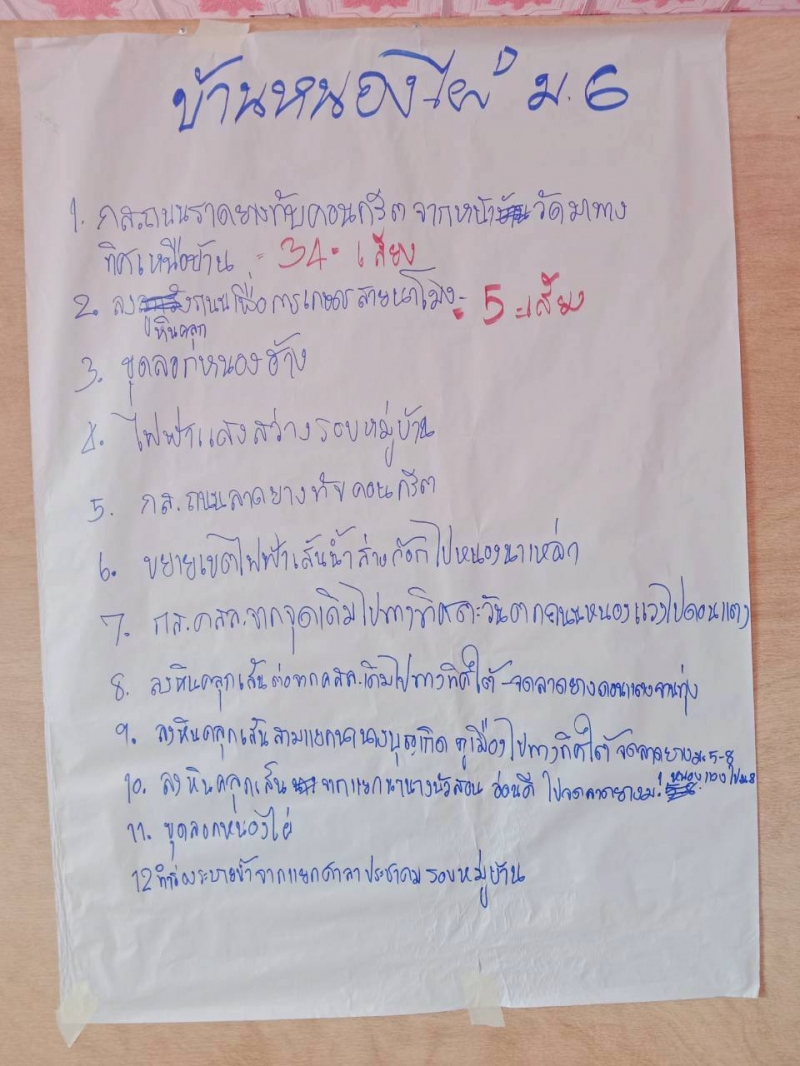 บ้านหนองไผ่ ม.6
1. กส.ถนนราดยางทับคอนกรีต จากหน้าวัดมาทาง
ทิศเหนือบ้าน = 34 = เสียง
2. ลงหินคลุกถนนเพื่อการเกษตรสายนาโมง = 5 = เสียง
3. ขุดลอกหนองฮ้าง
4. ไฟฟ้าแสงสว่างรอบหมู่บ้าน
5. กส.ถนนลาดยางทับคอนกรีต
6. ขยายเขตไฟฟ้าเส้นน้ำส่างก๊อกไปหนองนาเหล่า
7. กส.คสล.จากจุดเดิมไปทางทิศตะวันตกถนนหนองแวงไปดอนแดง
8. ลงหินคลุกเส้นต่อจากคสล.เดิมไปทางทิศใต้-จดลาดยางดอนแดงจานทุ่ง
9. ลงหินคลุกเส้นสามแยกนานางบุญเกิด ภูเมืองไปทางทิศใต้ จดลาดยาง ม.5-8
10. ลงหินคลุกเส้น จากแยกนานางบัวสอน อ่อนดี ไปจดลาดยาง หนองแวงไป ม.8
11. ขุดลอกหนองไผ่
12 ทำร่องระบายน้ำจากแยกศาลาประชาคมรอบหมู่บ้าน